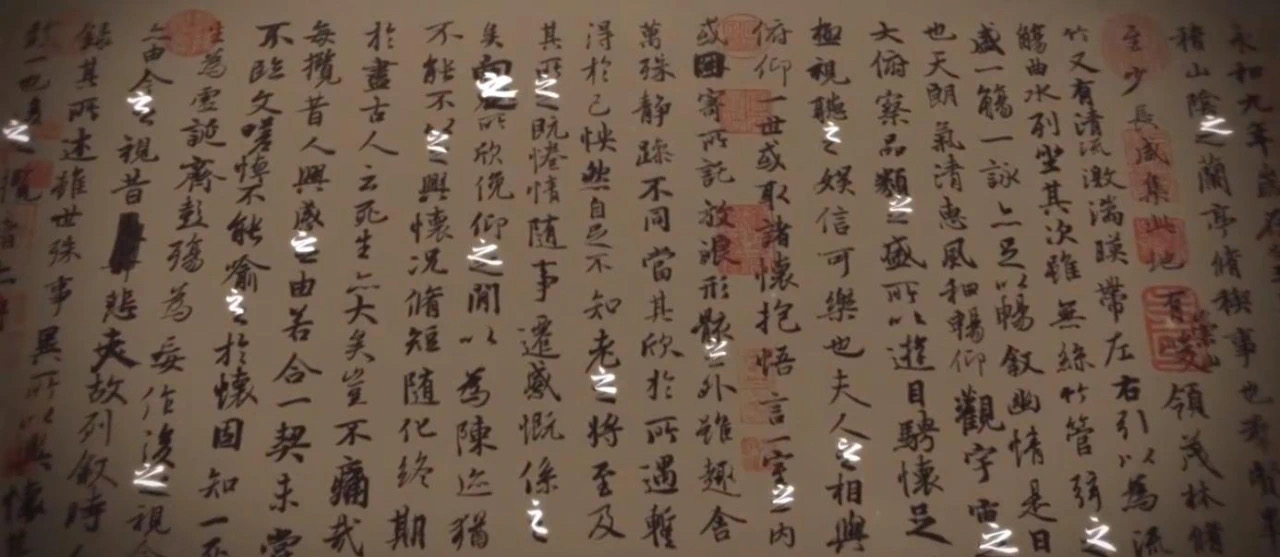 永和九年歲在
稽山陰之蘭亭脩禊事也羣賢畢
至少長咸集此地有崇山峻領茂林脩
竹又有清流激湍暎帶左右引以為流
觴曲水列坐其次雖無絲竹管弦之
盛一觴一詠亦足以暢敘幽情是日
也天朗氣清惠風和暢仰觀宇宙之
大俯察品類之盛所以遊目騁懷足
極視聽之娛信可樂也夫人之相與
俯仰一世或取諸懷抱悟言一室之內
或因寄所託放浪形骸之外雖趣舍
萬殊靜躁不同當其欣於所遇暫
得於己怏然自足不知老之將至及
其所之既惓情隨事遷感慨係之
矣向之所欣俛仰之閒以為陳迹猶
不能不以之興懷況脩短隨化終期
於盡古人云死生亦大矣豈不痛哉
每攬昔人興感之由若合一契未嘗
不臨文嗟悼不能喻之於懷固知一死
生為虛誕齊彭殤為妄作後之視今
亦由今之視昔悲夫故列敘時人
錄其所述雖世殊事異所以興懷
致一也後之攬者